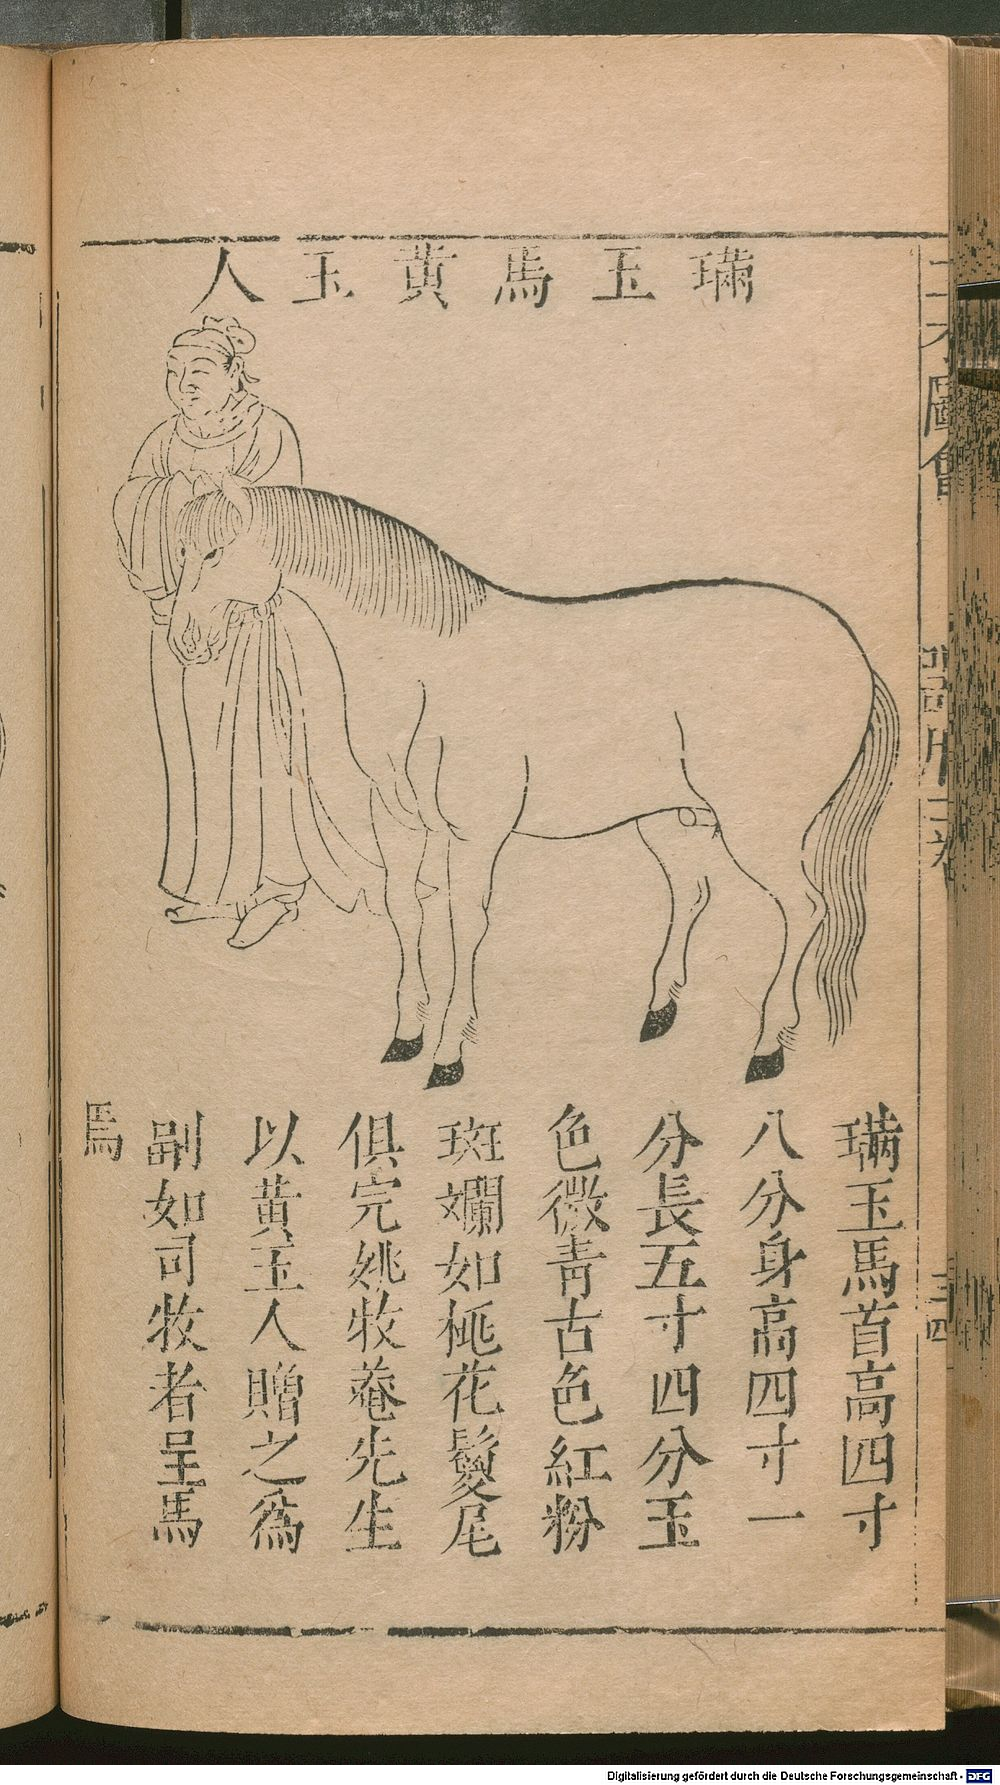 璊玉馬黄玉人
璊玉馬首高四寸
八分身高四寸一
分長五寸四分玉
色微靑古色紅粉
斑斕如桃花鬉尾
俱完姚牧菴先生
以黄玉人贈之爲
副如司牧者呈馬
焉
三才圖會
器用二卷
三四
Digitalisierung gefördert durch die Deutsche Forschungsgemeinschaft - DFG